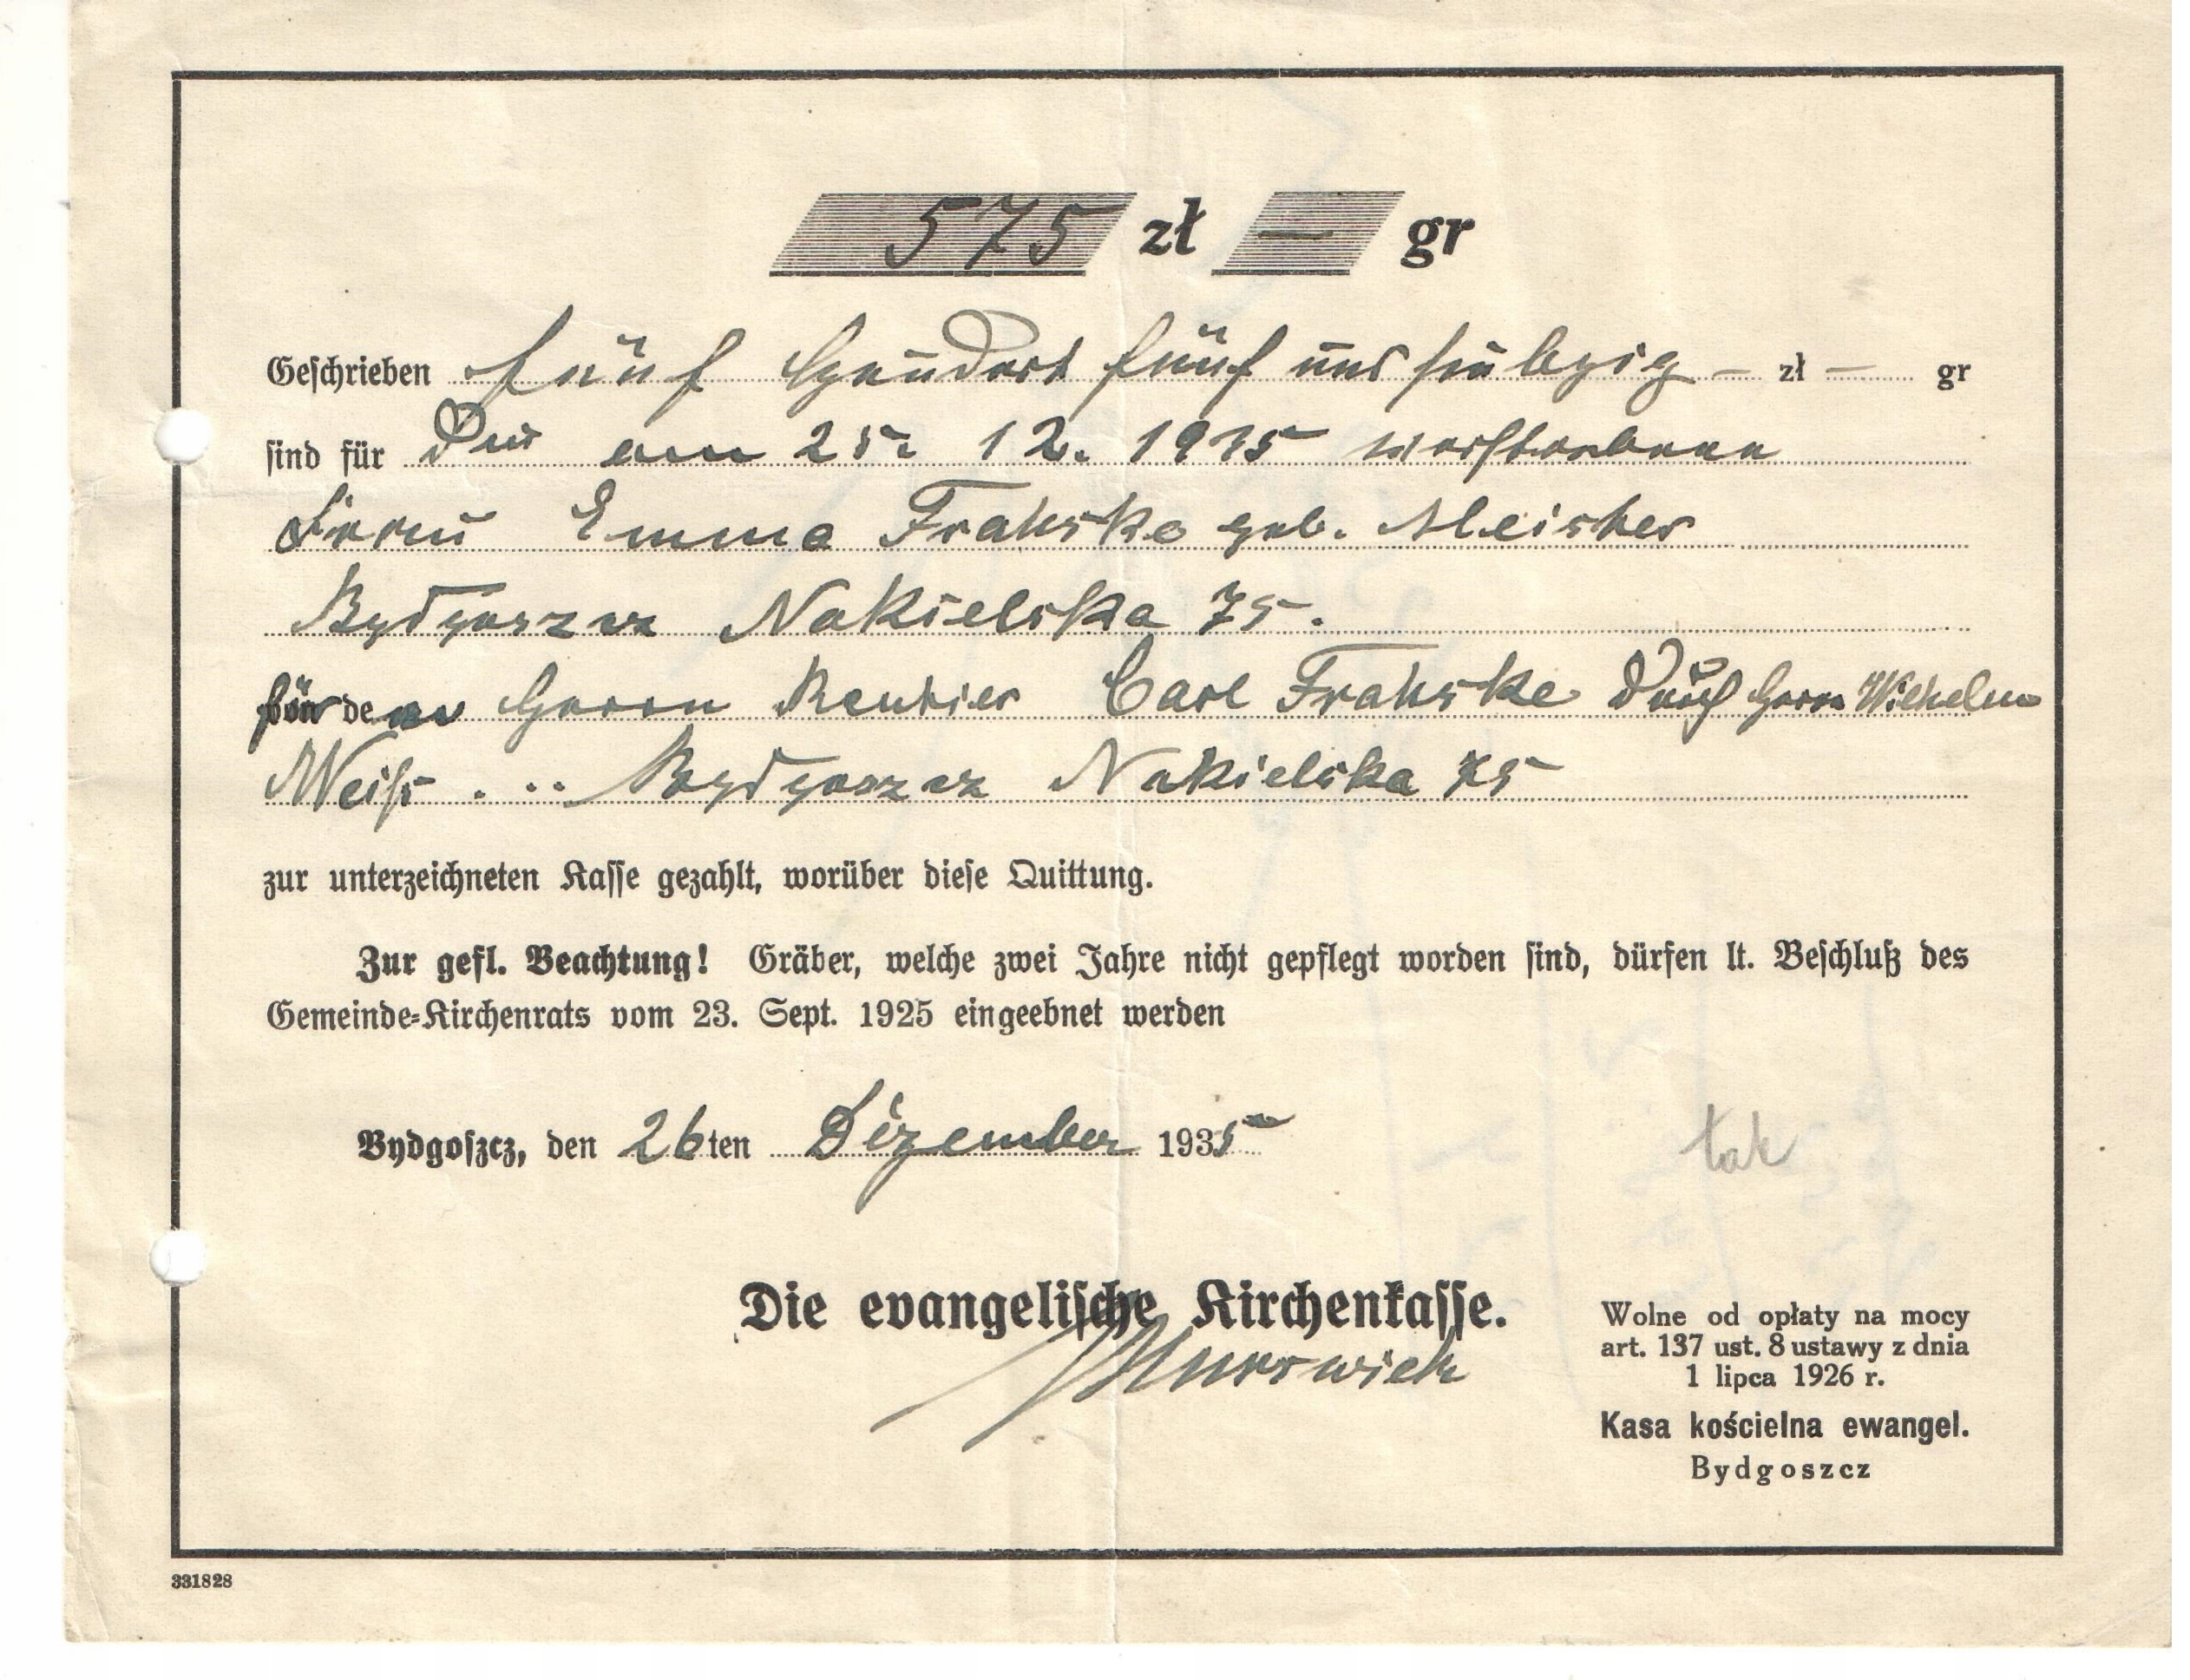 575 zł — gr
Geschrieben fünf Hundert fünf und siebzig — zł — gr
sind für die am 25. 12. 1935 verstorbene
Frau Emma Frahske geb. Meister
Bydgoszcz Nakielska 75.
für den Herrn Rentier Carl Frahske durch Herrn Wilhelm
Weiß . .. Bydgoszcz Nakielska 75
zur unterzeichneten Kasse gezahlt, worüber diese Quittung.
Zur gefl. Beachtung! Gräber, welche zwei Jahre nicht gepflegt worden sind, dürfen lt. Beschluß des
Gemeinde-Kirchenrats vom 23. Sept. 1925 eingeebnet werden
Bydgoszcz, den 26ten Dezember 1935
tak
Die evangelische Kirchenkasse.
Murswiek
Wolne od opłaty na mocy
art. 137 ust. 8 ustawy z dnia
1 lipca 1926 r.
Kasa kościelna ewangel.
Bydgoszcz
331828